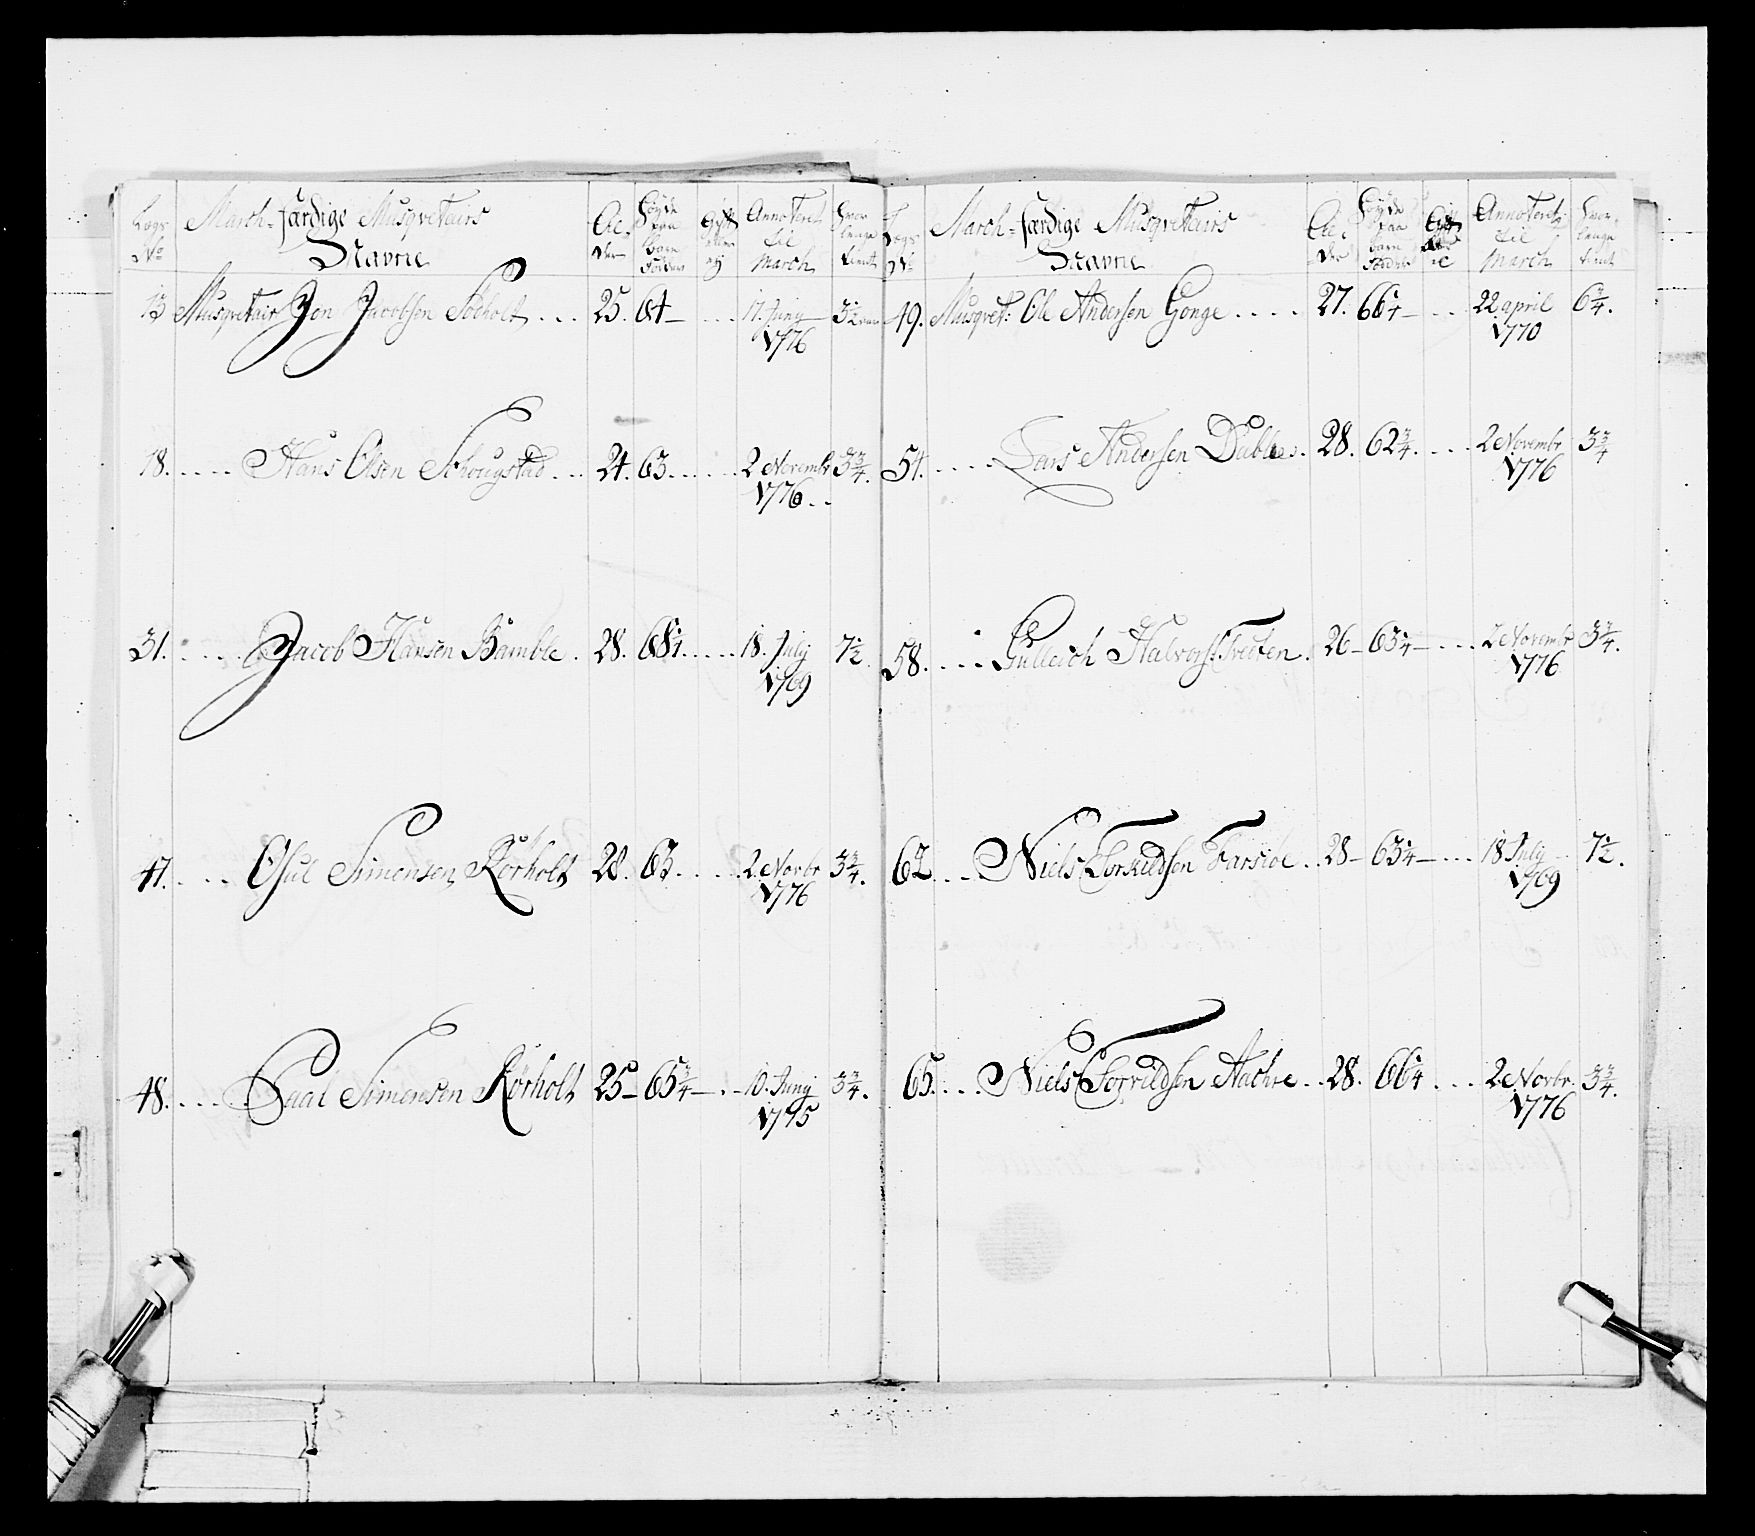 Lægs No
March-færdige Musqvetairs Navne
Al-der
Høyde paa Bare Fødder
Gift eller ej
Annoteret til March
Hvor længe tient
13 Musqvetair Jon Jacobsen Solholt ... 25. 64 — ... 17. Junij 1776 3½
18. .... Hans Olsen Schougstad ... 24. 63. .... 2 Novembr 1776 .. 3¾.
31. .... Jacob Hansen Bamble . 28. 68¼ .... 18. July 1769 7½
47. ... Osul Simonsen Rørholt 28. 63. .... 2 Novbr 1776 3¾.
48. ... Paal Simonsen Rørholt 25 — 65¾ — .. 10. Junij 1775 3¾.
Lægs No
March-færdige Musqvetairs Navne
Al-der
Høyde paa bare Fødder
Annoteret til March
Hvor længe tient
49. Musqvet: Ole Andersen Gonge .... 27. 66¼ — ... 22 april 1770 6¾.
54. .... Lars Andersen Duble . 28. 62¾. ... 2 Novembr 1776 3¾
58. .... Gulleich Halvors: Tveten . 26 — 63¼ — ... 2 Novembr 1776 3¾.
62. ... Niels Torkildsen Farsiøe .. 28 — 63¼ — ... 18 July 1769 7½.
65. ... Niels Torkildsen Aachre .. 28. 66¼ ... 2 Novbr. 1776 3¾.